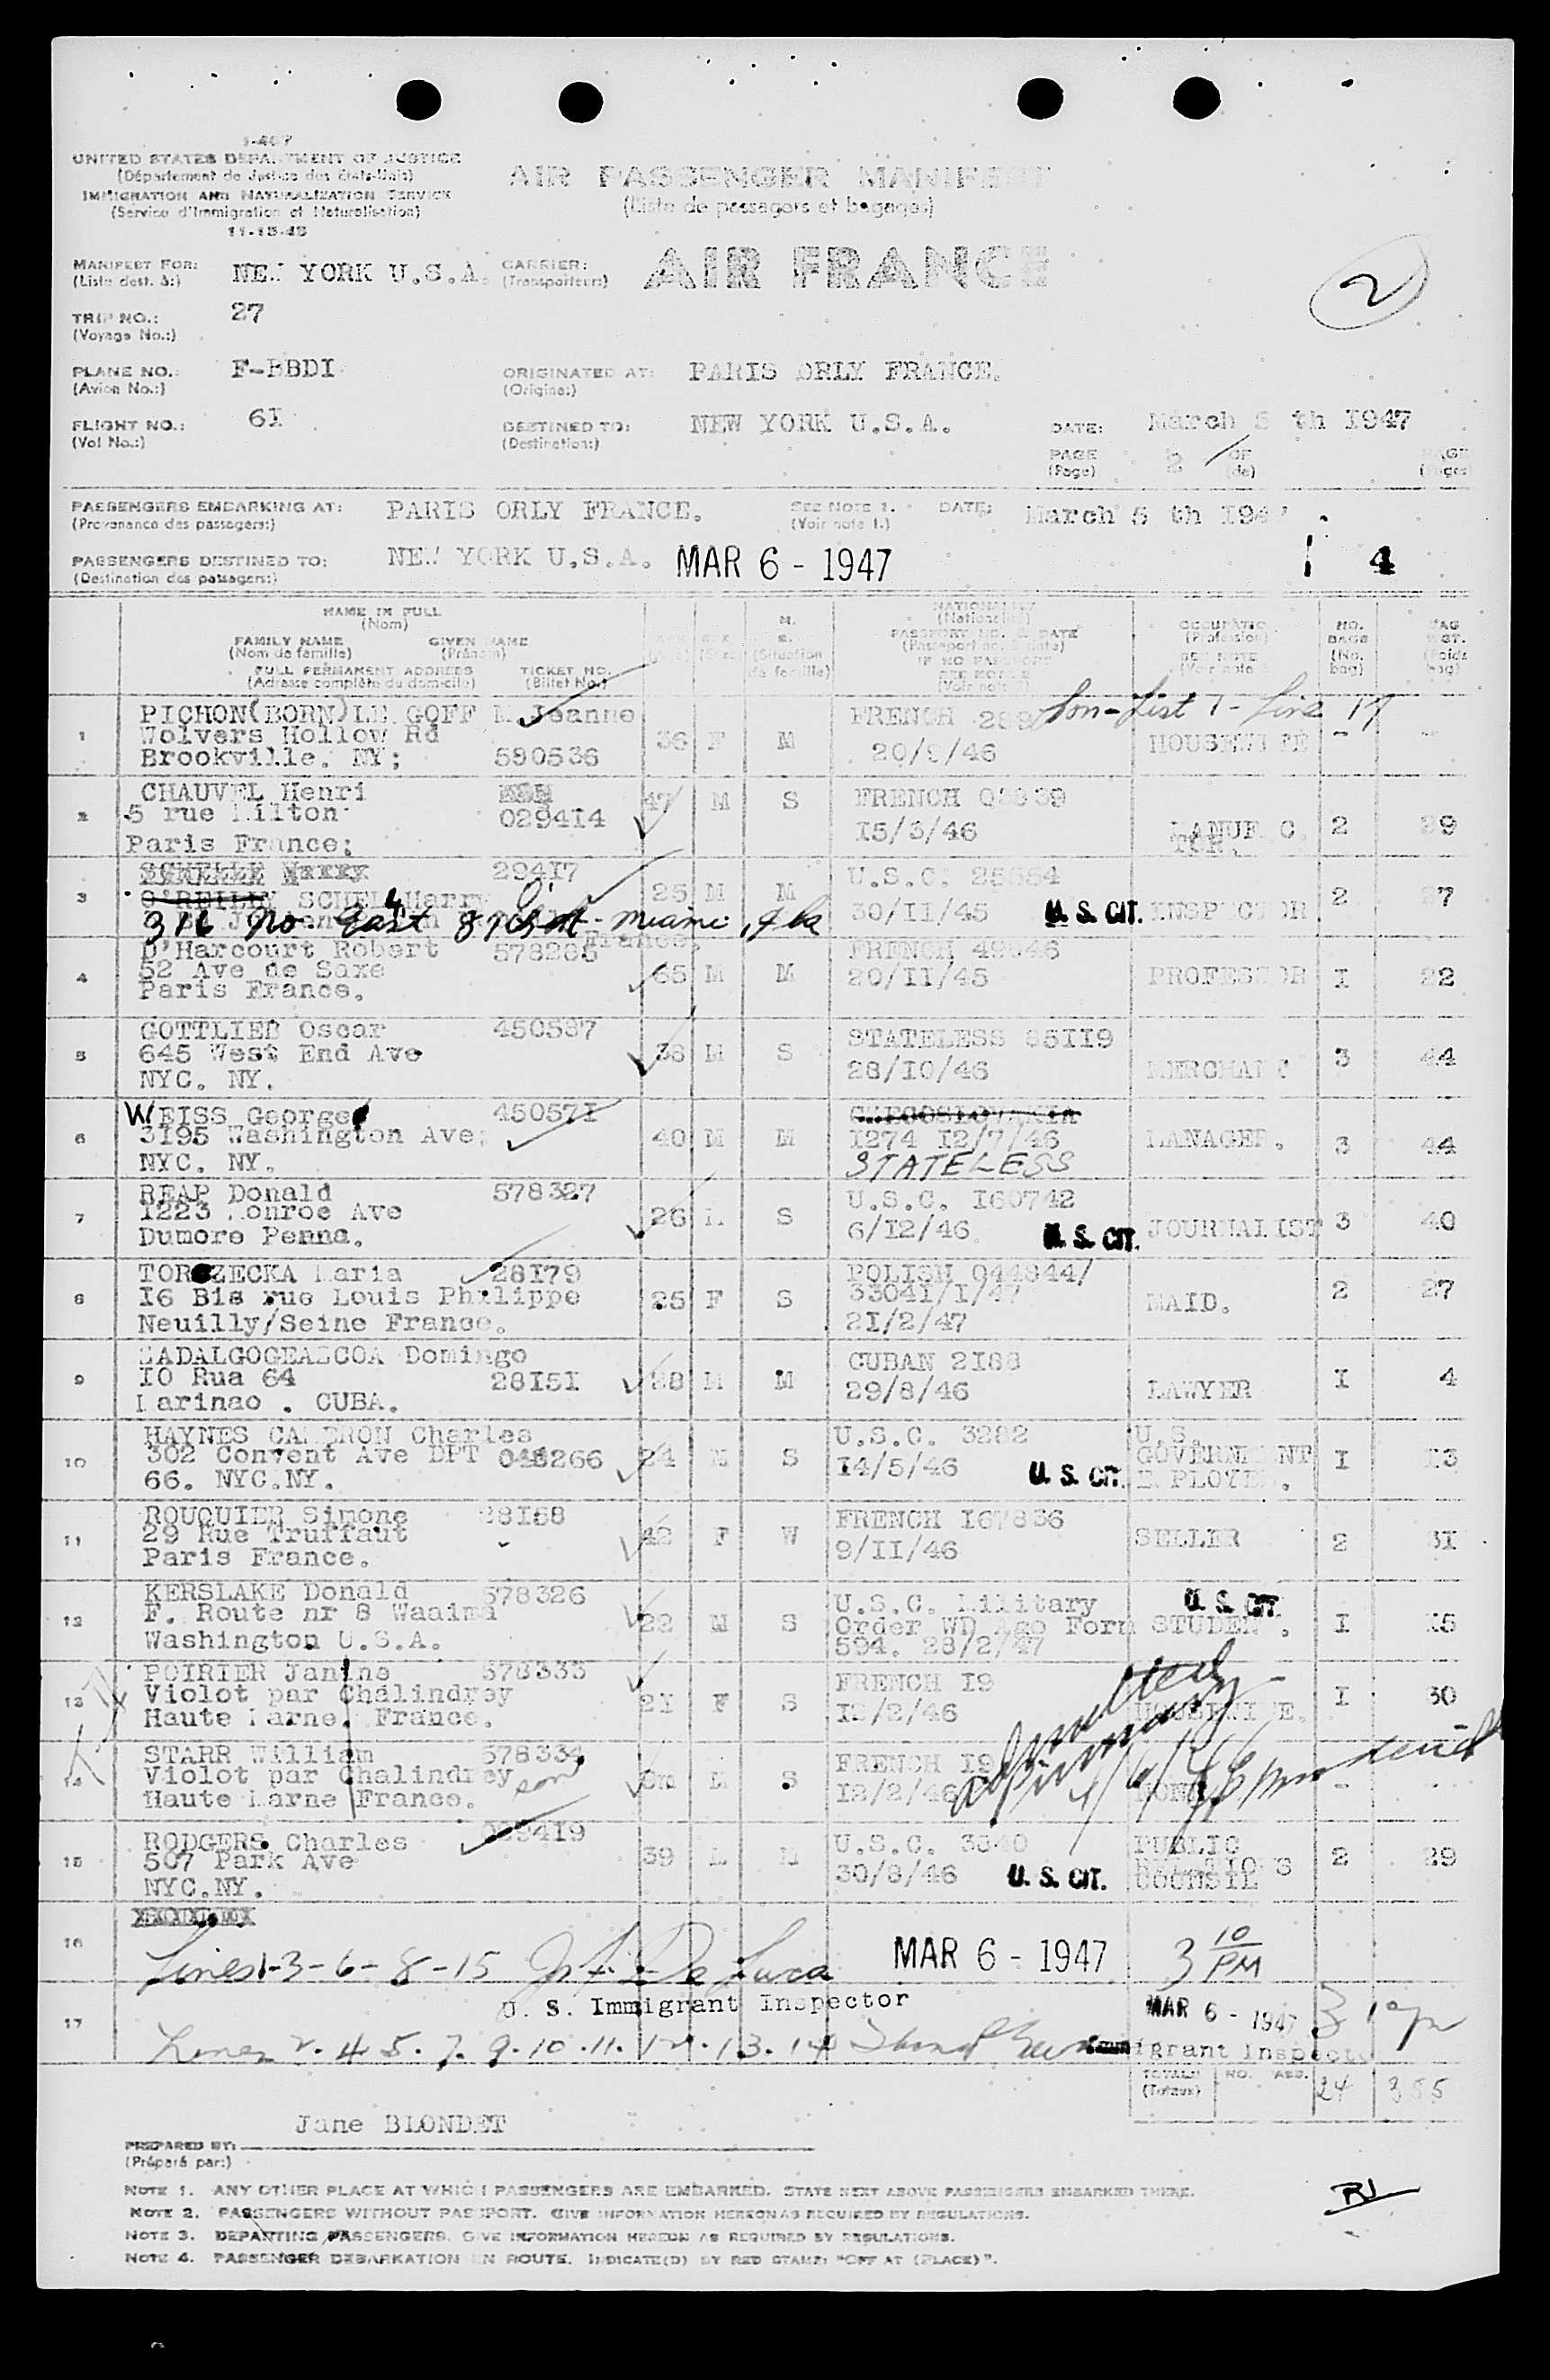 I-467
UNITED STATES DEPARTMENT OF JUSTICE
(Département de Justice des États-Unis)
IMMIGRATION AND NATURALIZATION SERVICE
(Service d'Immigration et Naturalisation)
11-15-45
AIR PASSENGER MANIFEST
(Liste de passagers et bagages)
MANIFEST FOR: NEW YORK U.S.A.
(Liste dest. à:)
CARRIER: AIR FRANCE
(Transporteur:)
2
TRIP NO.: 27
(Voyage No.:)
PLANE NO.: F-BBDI
(Avion No.:)
ORIGINATED AT: PARIS ORLY FRANCE.
(Origine:)
FLIGHT NO.: 6I
(Vol No.:)
DESTINED TO: NEW YORK U.S.A.
(Destination:)
DATE: March 5 th I947
PAGE 2 OF PAGE
(Page) (de) (Pages)
PASSENGERS EMBARKING AT: PARIS ORLY FRANCE.
(Provenance des passagers:)
SEE NOTE 1. DATE: March 5 th I947
(Voir note 1.)
PASSENGERS DESTINED TO: NEW YORK U.S.A. MAR 6 - 1947
(Destination des passagers:)
4
NAME IN FULL
(Nom)
FAMILY NAME GIVEN NAME
(Nom de famille) (Prénom)
FULL PERMANENT ADDRESS TICKET NO.
(Adresse complète du domicile) (Billet No.)
AGE SEX M. S.
(Situation de famille)
NATIONALITY
(Nationalité)
PASSPORT NO. & DATE
(Passeport no. & date)
IF NO PASSPORT
SEE NOTE 2
(Voir note 2)
OCCUPATION
(Profession)
SEE NOTE
(Voir note
NO. BAGS
(No. bag)
BAG WGT.
(Poids bag)
1 PICHON(BORN)LE GOFF M.Jeanne FRENCH Son-List 1-Line 17
Wolvers Hollow Rd 36 F M HOUSEWIFE - -
Brookville. NY; 580536 20/9/46
2 CHAUVEL Henri 47 M S FRENCH
5 rue Milton 029414 15/3/46 MANUFAC 2 29
Paris France; TOR.
3 29417 25 M M U.S.C. 25554
O'REILLY SCHELL Harry 30/II/45 U. S. CIT. INSPECTOR 2 27
316 No. East 87th St. Miami, Fla
France.
4 D'Harcourt Robert 578286 65 M M FRENCH 49646
52 Ave de Saxe 20/II/45 PROFESSOR I 22
Paris France.
5 GOTTLIEB Oscar 450587 38 M S STATELESS 85II9
645 West End Ave 28/I0/46 MERCHANT 3 44
NYC. NY.
6 WEISS George 45057I 40 M M CZECOSLOVAKIA
3I95 Washington Ave; I274 I2/7/46 MANAGER. 3 44
NYC. NY. STATELESS
7 REAP Donald 578327 26 M S U.S.C. I60742
I223 Monroe Ave 6/I2/46 U. S. CIT. JOURNALIST 3 40
Dumore Penna.
8 TORCZECKA Maria 28I79 25 F S POLISH 044844/
I6 Bis rue Louis Philippe 3304I/I/47 MAID. 2 27
Neuilly/Seine France. 2I/2/47
9 ZADALGOGEAZCOA Domingo CUBAN 2I88
I0 Rua 64 28I5I M M 29/8/46 LAWYER I 4
Marinao . CUBA.
10 HAYNES CAMERON Charles 24 M S U.S.C. 3282 U.S.
302 Convent Ave DPT 048266 I4/5/46 U. S. CIT. GOVERNMENT I I3
66. NYC.NY. EMPLOYEE.
11 ROUQUIER Simone 28I68 42 F W FRENCH I67836
29 Rue Truffaut 9/II/46 SELLER 2 3I
Paris France.
12 KERSLAKE Donald 578326 22 M S U.S.C. Military U. S. CIT.
F. Route nr 8 Waaima Order WD Ago Form STUDENT. I I5
Washington U.S.A. 594. 28/2/47
13 POIRIER Janine 578333 2I F S FRENCH I9
Violot par Chalindrey I2/2/46 HOUSEWIFE. I 30
Haute Marne. France.
14 STARR William 578334 8m M S FRENCH I9
Violot par Chalindrey son I2/2/46 NONE. -
Haute Marne France.
15 RODGERS Charles 029419 39 M M U.S.C. 3640 PUBLIC
507 Park Ave 30/8/46 U. S. CIT. RELATIONS 2 29
NYC.NY. COUNSIL
16 Lines 1-3-6-8-15 De Luca MAR 6 - 1947 3 10 PM
U. S. Immigrant Inspector
17 Lines 2. 4 5. 7. 9. 10. 11. 12. 13. 14 MAR 6 - 1947
Immigrant Inspector
TOTALS NO. 24 355
(Totaux)
Jane BLONDET
PREPARED BY:
(Préparé par:)
NOTE 1. ANY OTHER PLACE AT WHICH PASSENGERS ARE EMBARKED. STATE NEXT ABOVE PASSENGERS EMBARKED THERE.
NOTE 2. PASSENGERS WITHOUT PASSPORT. GIVE INFORMATION HEREON AS REQUIRED BY REGULATIONS.
NOTE 3. DEPARTING PASSENGERS. GIVE INFORMATION HEREON AS REQUIRED BY REGULATIONS.
NOTE 4. PASSENGER DEBARKATION EN ROUTE. INDICATE(D) BY RED STAMP: "OFF AT (PLACE)".